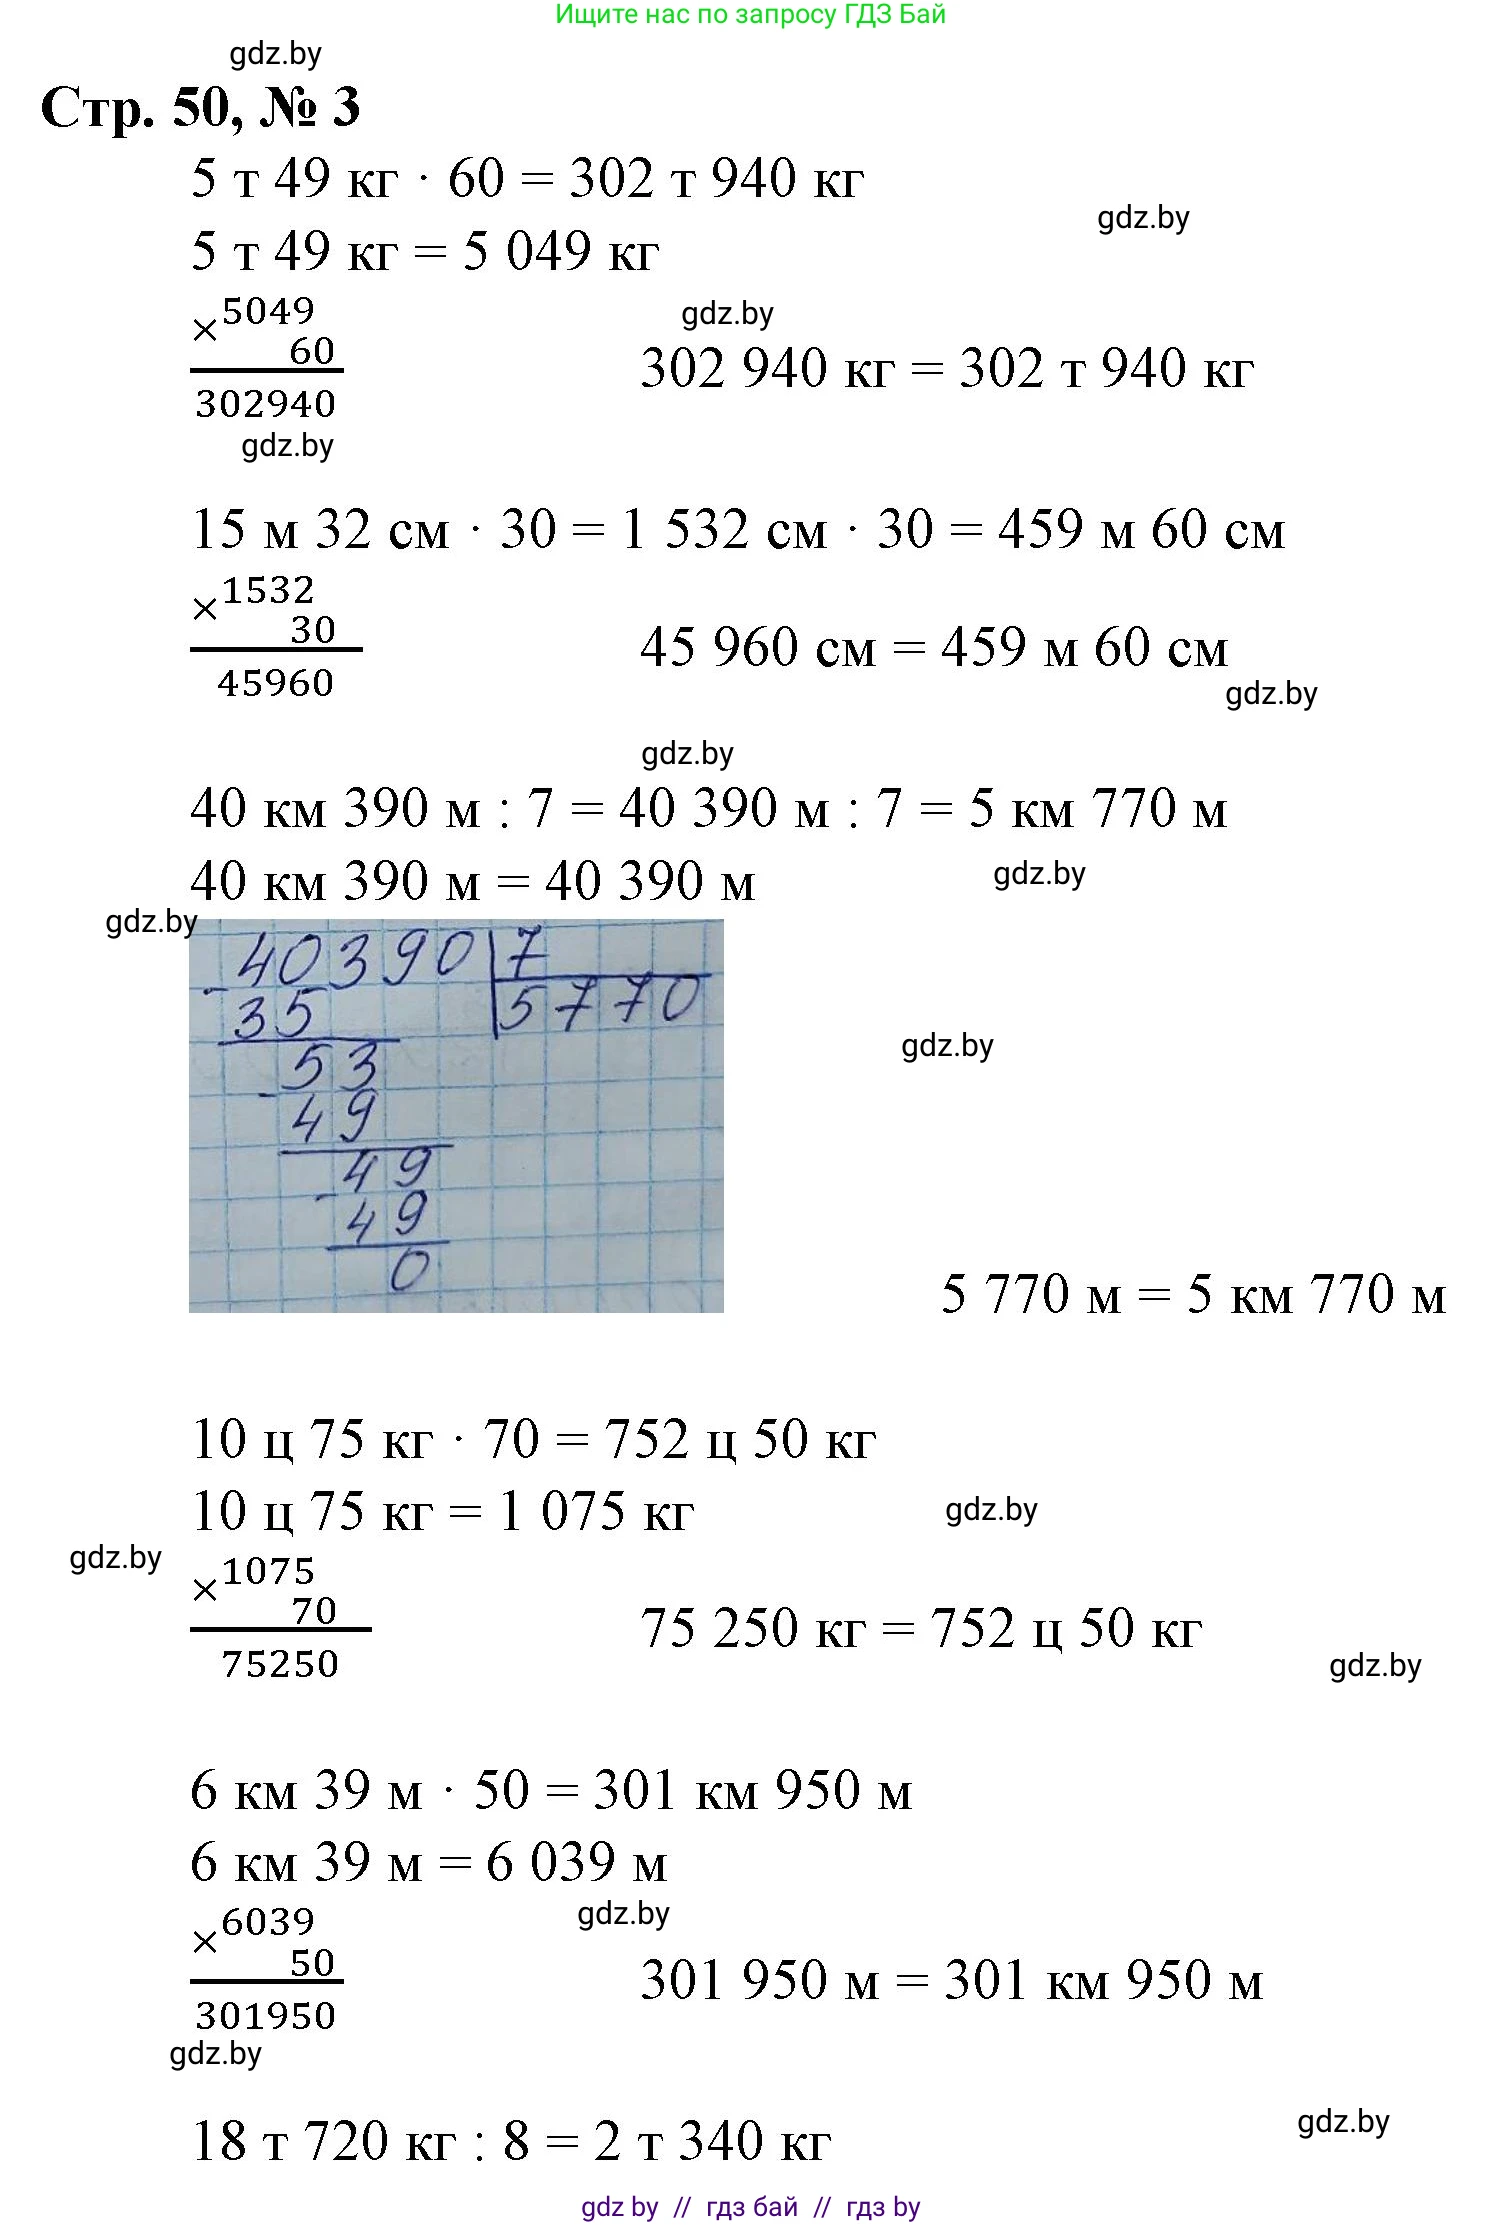 Ищите нас по запросу ГДЗ Бай
gdz.by
Стр. 50, № 3
5 т 49 кг · 60 = 302 т 940 кг
gdz.by
5 т 49 кг = 5 049 кг
×5049
60
302940
gdz.by
302 940 кг = 302 т 940 кг
gdz.by
15 м 32 см · 30 = 1 532 см · 30 = 459 м 60 см
×1532
30
45960
45 960 см = 459 м 60 см
gdz.by
gdz.by
40 км 390 м : 7 = 40 390 м : 7 = 5 км 770 м
40 км 390 м = 40 390 м
gdz.by
gdz.by
- 40390 | 7
35 | 5770
- 53
49
- 49
49
0
gdz.by
5 770 м = 5 км 770 м
10 ц 75 кг · 70 = 752 ц 50 кг
10 ц 75 кг = 1 075 кг
gdz.by
gdz.by
×1075
70
75250
75 250 кг = 752 ц 50 кг
gdz.by
6 км 39 м · 50 = 301 км 950 м
6 км 39 м = 6 039 м
×6039
50
301950
gdz.by
301 950 м = 301 км 950 м
gdz.by
18 т 720 кг : 8 = 2 т 340 кг
gdz.by
gdz by // гдз бай // гдз by